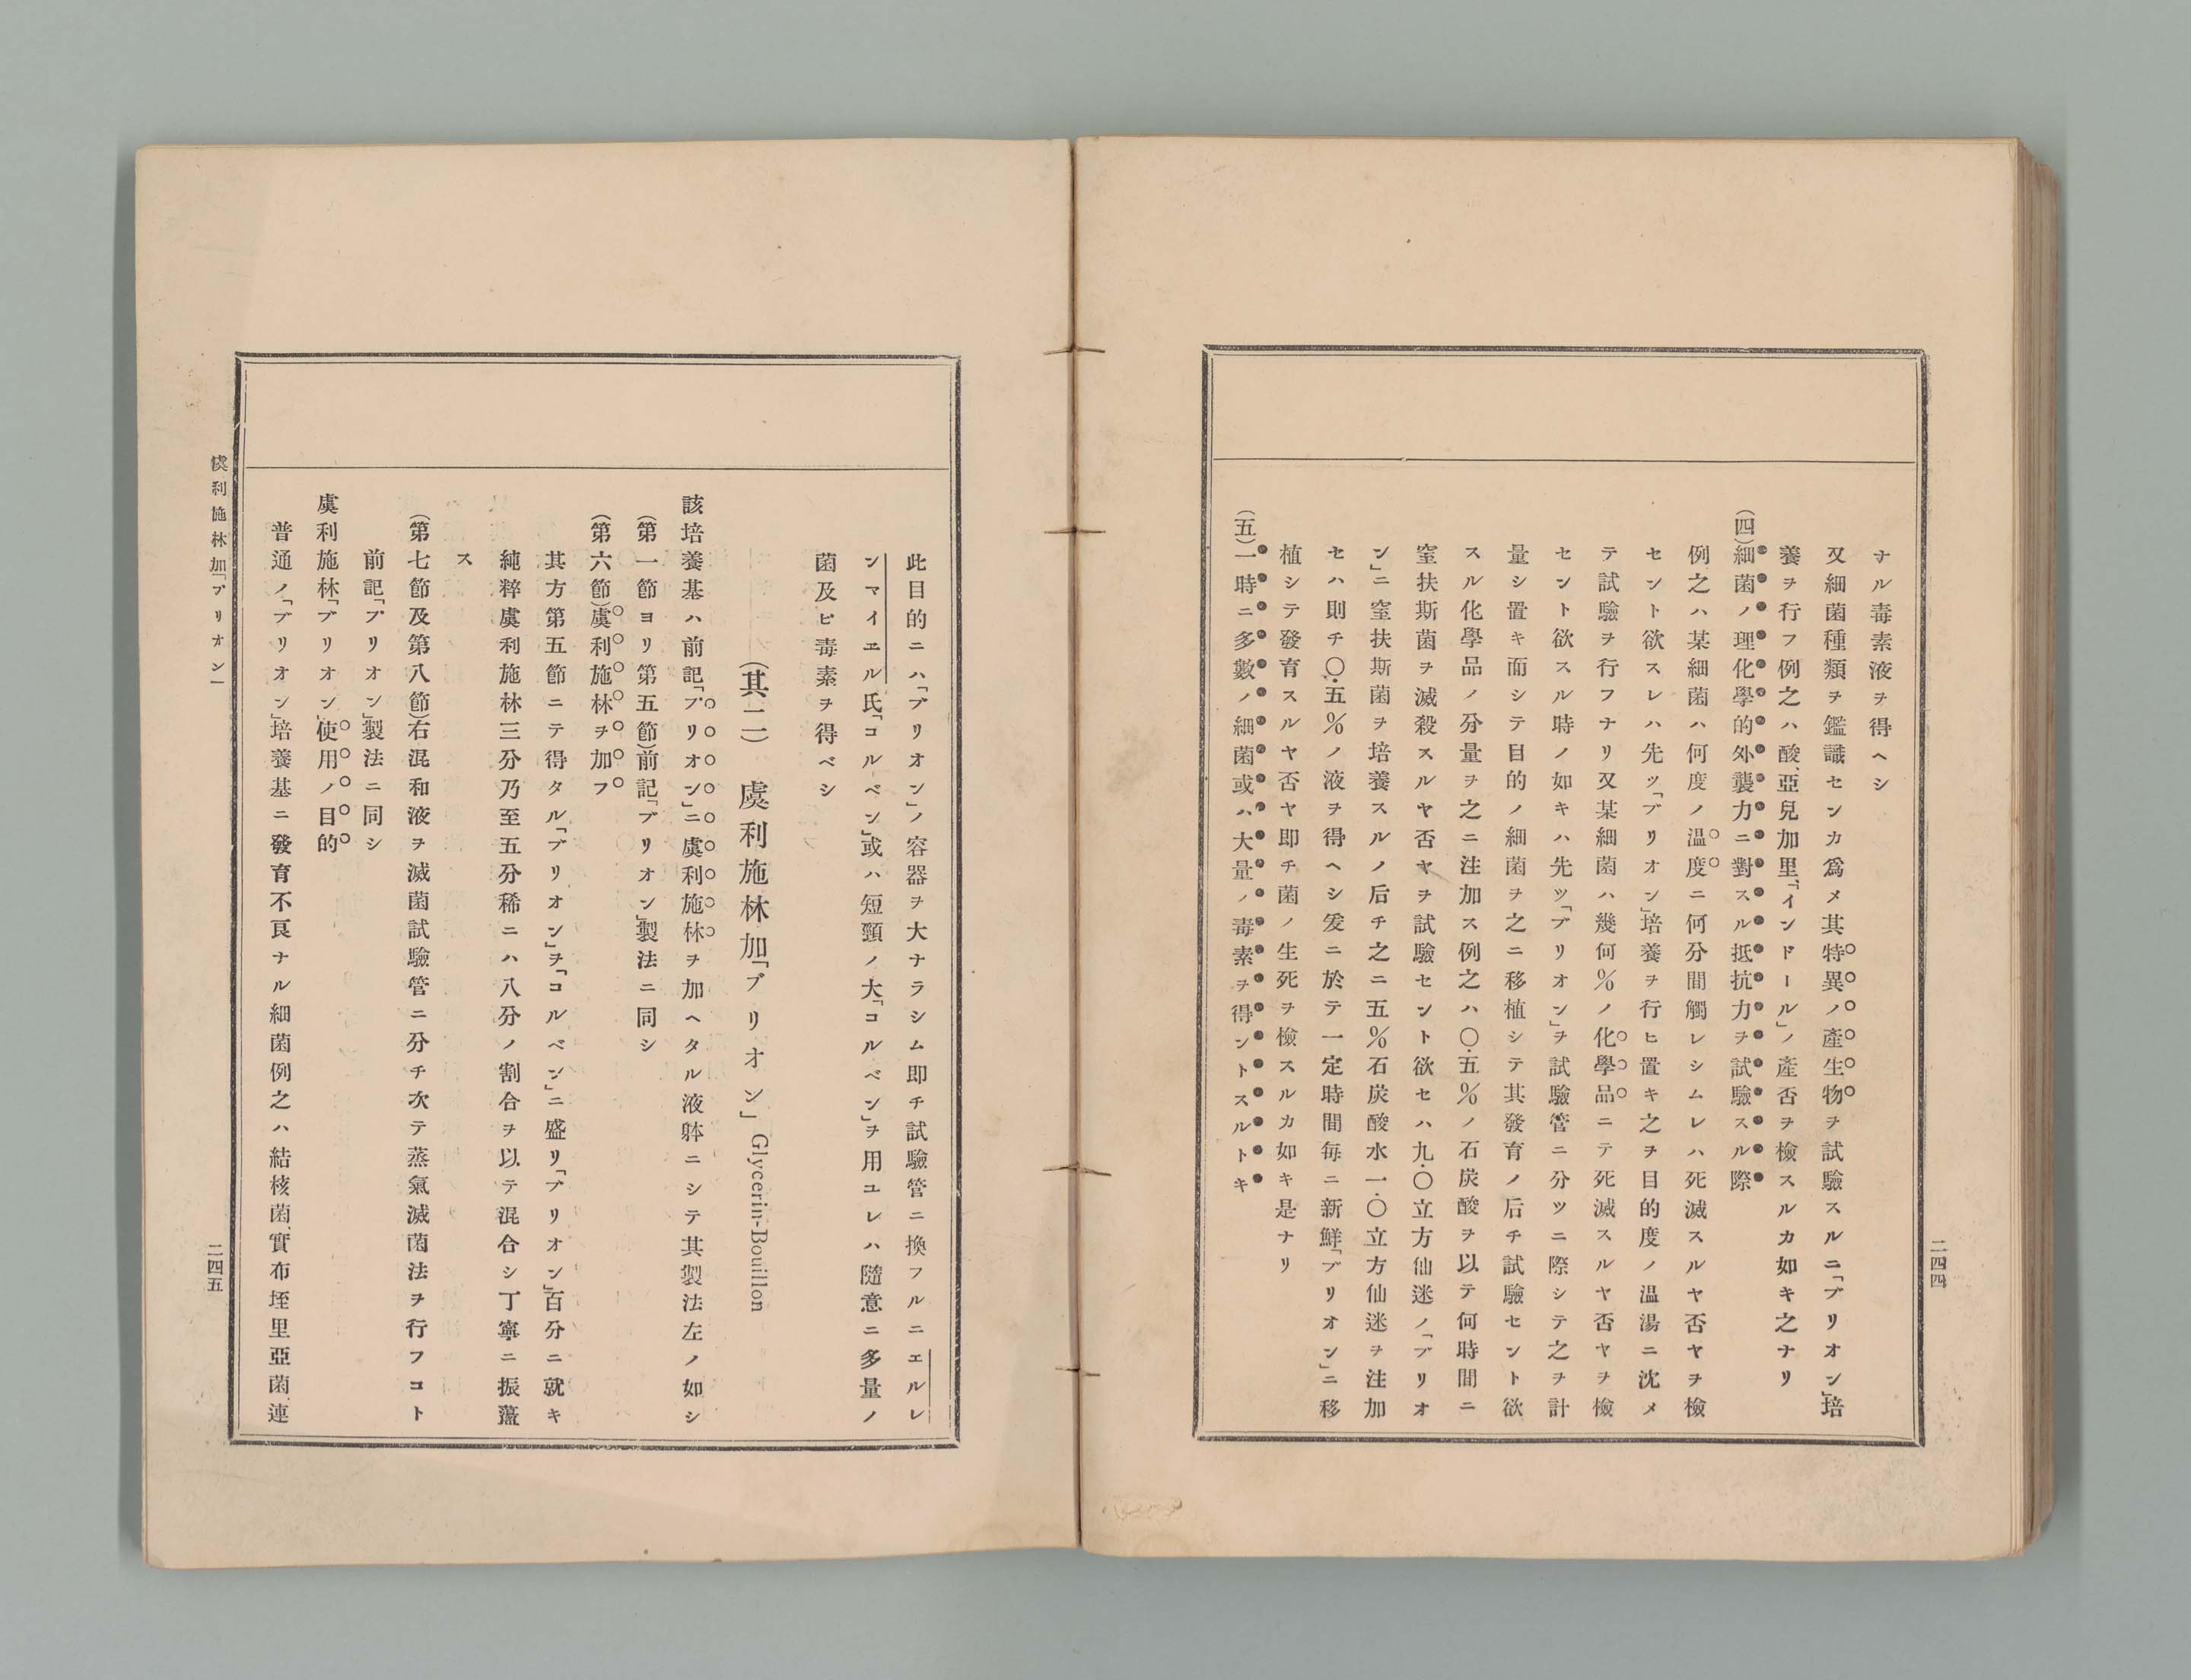 二四四
ナル毒素液ヲ得ヘシ
又細菌種類ヲ鑑識センカ爲メ其特異ノ產生物ヲ試驗スルニ「ブリオン」培
養ヲ行フ例之ハ酸、亞兒加里、「インドール」ノ產否ヲ檢スルカ如キ之ナリ
(四)細菌ノ理化學的外襲力ニ對スル抵抗力ヲ試驗スル際
例之ハ某細菌ハ何度ノ温度ニ何分間觸レシムレハ死滅スルヤ否ヤヲ檢
セント欲スレハ先ツ「ブリオン」培養ヲ行ヒ置キ之ヲ目的度ノ温湯ニ沈メ
テ試驗ヲ行フナリ又某細菌ハ幾何%ノ化學品ニテ死滅スルヤ否ヤヲ檢
セント欲スル時ノ如キハ先ツ「ブリオン」ヲ試驗管ニ分ツニ際シテ之ヲ計
量シ置キ而シテ目的ノ細菌ヲ之ニ移植シテ其發育ノ后チ試驗セント欲
スル化學品ノ分量ヲ之ニ注加ス例之ハ〇.五%ノ石炭酸ヲ以テ何時間ニ
窒扶斯菌ヲ滅殺スルヤ否ヤヲ試驗セント欲セハ九.〇立方仙迷ノ「ブリオ
ン」ニ窒扶斯菌ヲ培養スルノ后チ之ニ五%石炭酸水一.〇立方仙迷ヲ注加
セハ則チ〇.五%ノ液ヲ得ヘシ爰ニ於テ一定時間每ニ新鮮「ブリオン」ニ移
植シテ發育スルヤ否ヤ即チ菌ノ生死ヲ檢スルカ如キ是ナリ
(五)一時ニ多數ノ細菌或ハ大量ノ毒素ヲ得ントスルトキ
此目的ニハ「ブリオン」ノ容器ヲ大ナラシム即チ試驗管ニ換フルニエルレ
ンマイエル氏「コルベン」或ハ短頸ノ大「コルベン」ヲ用ユレハ隨意ニ多量ノ
菌及ヒ毒素ヲ得ベシ
(其二) 虞利施林加「ブリオン」 Glycerin-Bouillon
該培養基ハ前記「ブリオン」ニ虞利施林ヲ加ヘタル液躰ニシテ其製法左ノ如シ
(第一節ヨリ第五節)前記「ブリオン」製法ニ同シ
(第六節)虞利施林ヲ加フ
其方第五節ニテ得タル「ブリオン」ヲ「コルベン」ニ盛リ「ブリオン」百分ニ就キ
純粹虞利施林三分乃至五分稀ニハ八分ノ割合ヲ以テ混合シ丁寧ニ振盪
ス
(第七節及第八節)右混和液ヲ滅菌試驗管ニ分チ次テ蒸氣滅菌法ヲ行フコト
前記「ブリオン」製法ニ同シ
虞利施林「ブリオン」使用ノ目的
普通ノ「ブリオン」培養基ニ發育不良ナル細菌例之ハ結核菌、實布垤里亞菌、連
虞利施林加「ブリオン」
二四五